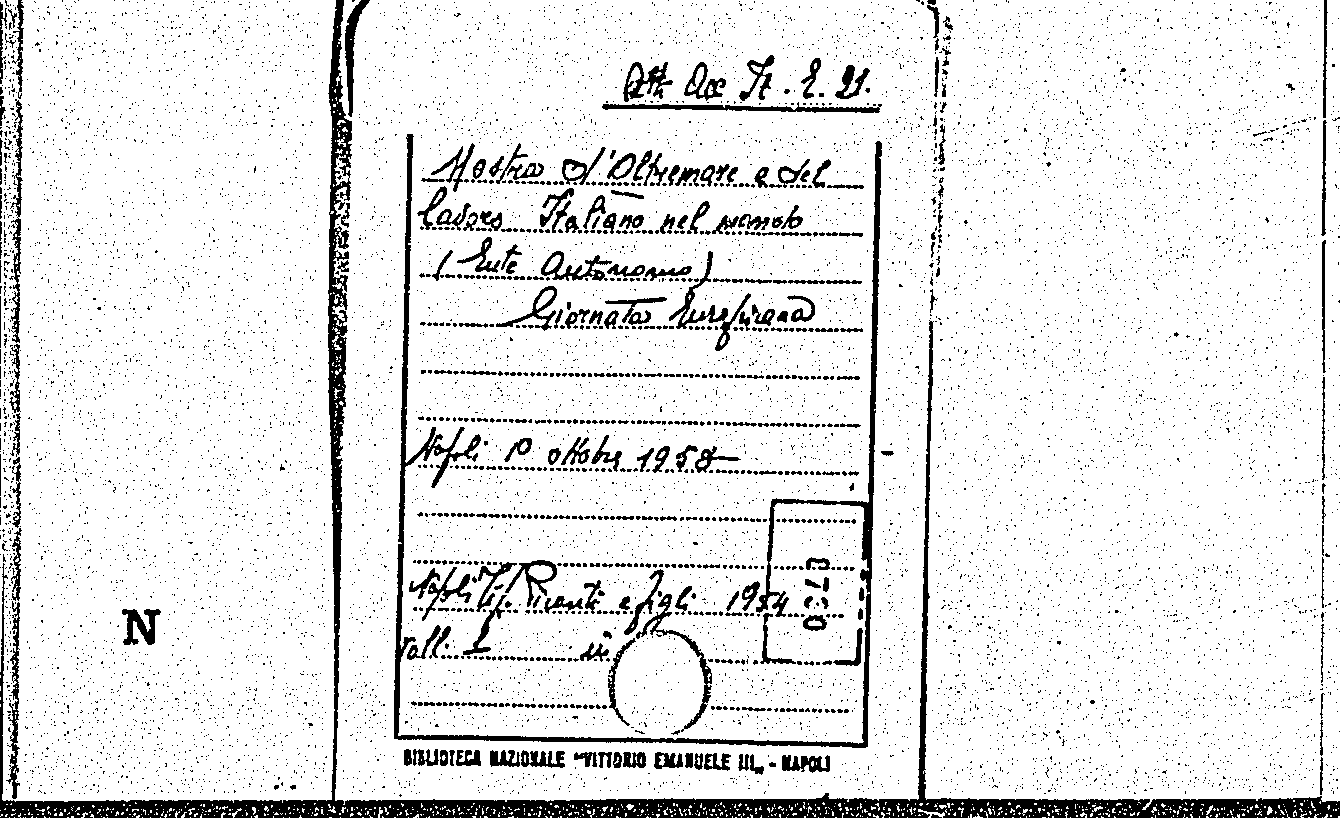 Att. Acc It. E. 21.
Mostra d'Oltremare e del
lavoro Italiano nel mondo
(Ente Autonomo)
Giornata
Napoli 10 ottobre 1958
Napoli Tip. e figli 1954
in
0730
N
BIBLIOTECA NAZIONALE "VITTORIO EMANUELE III„ - NAPOLI